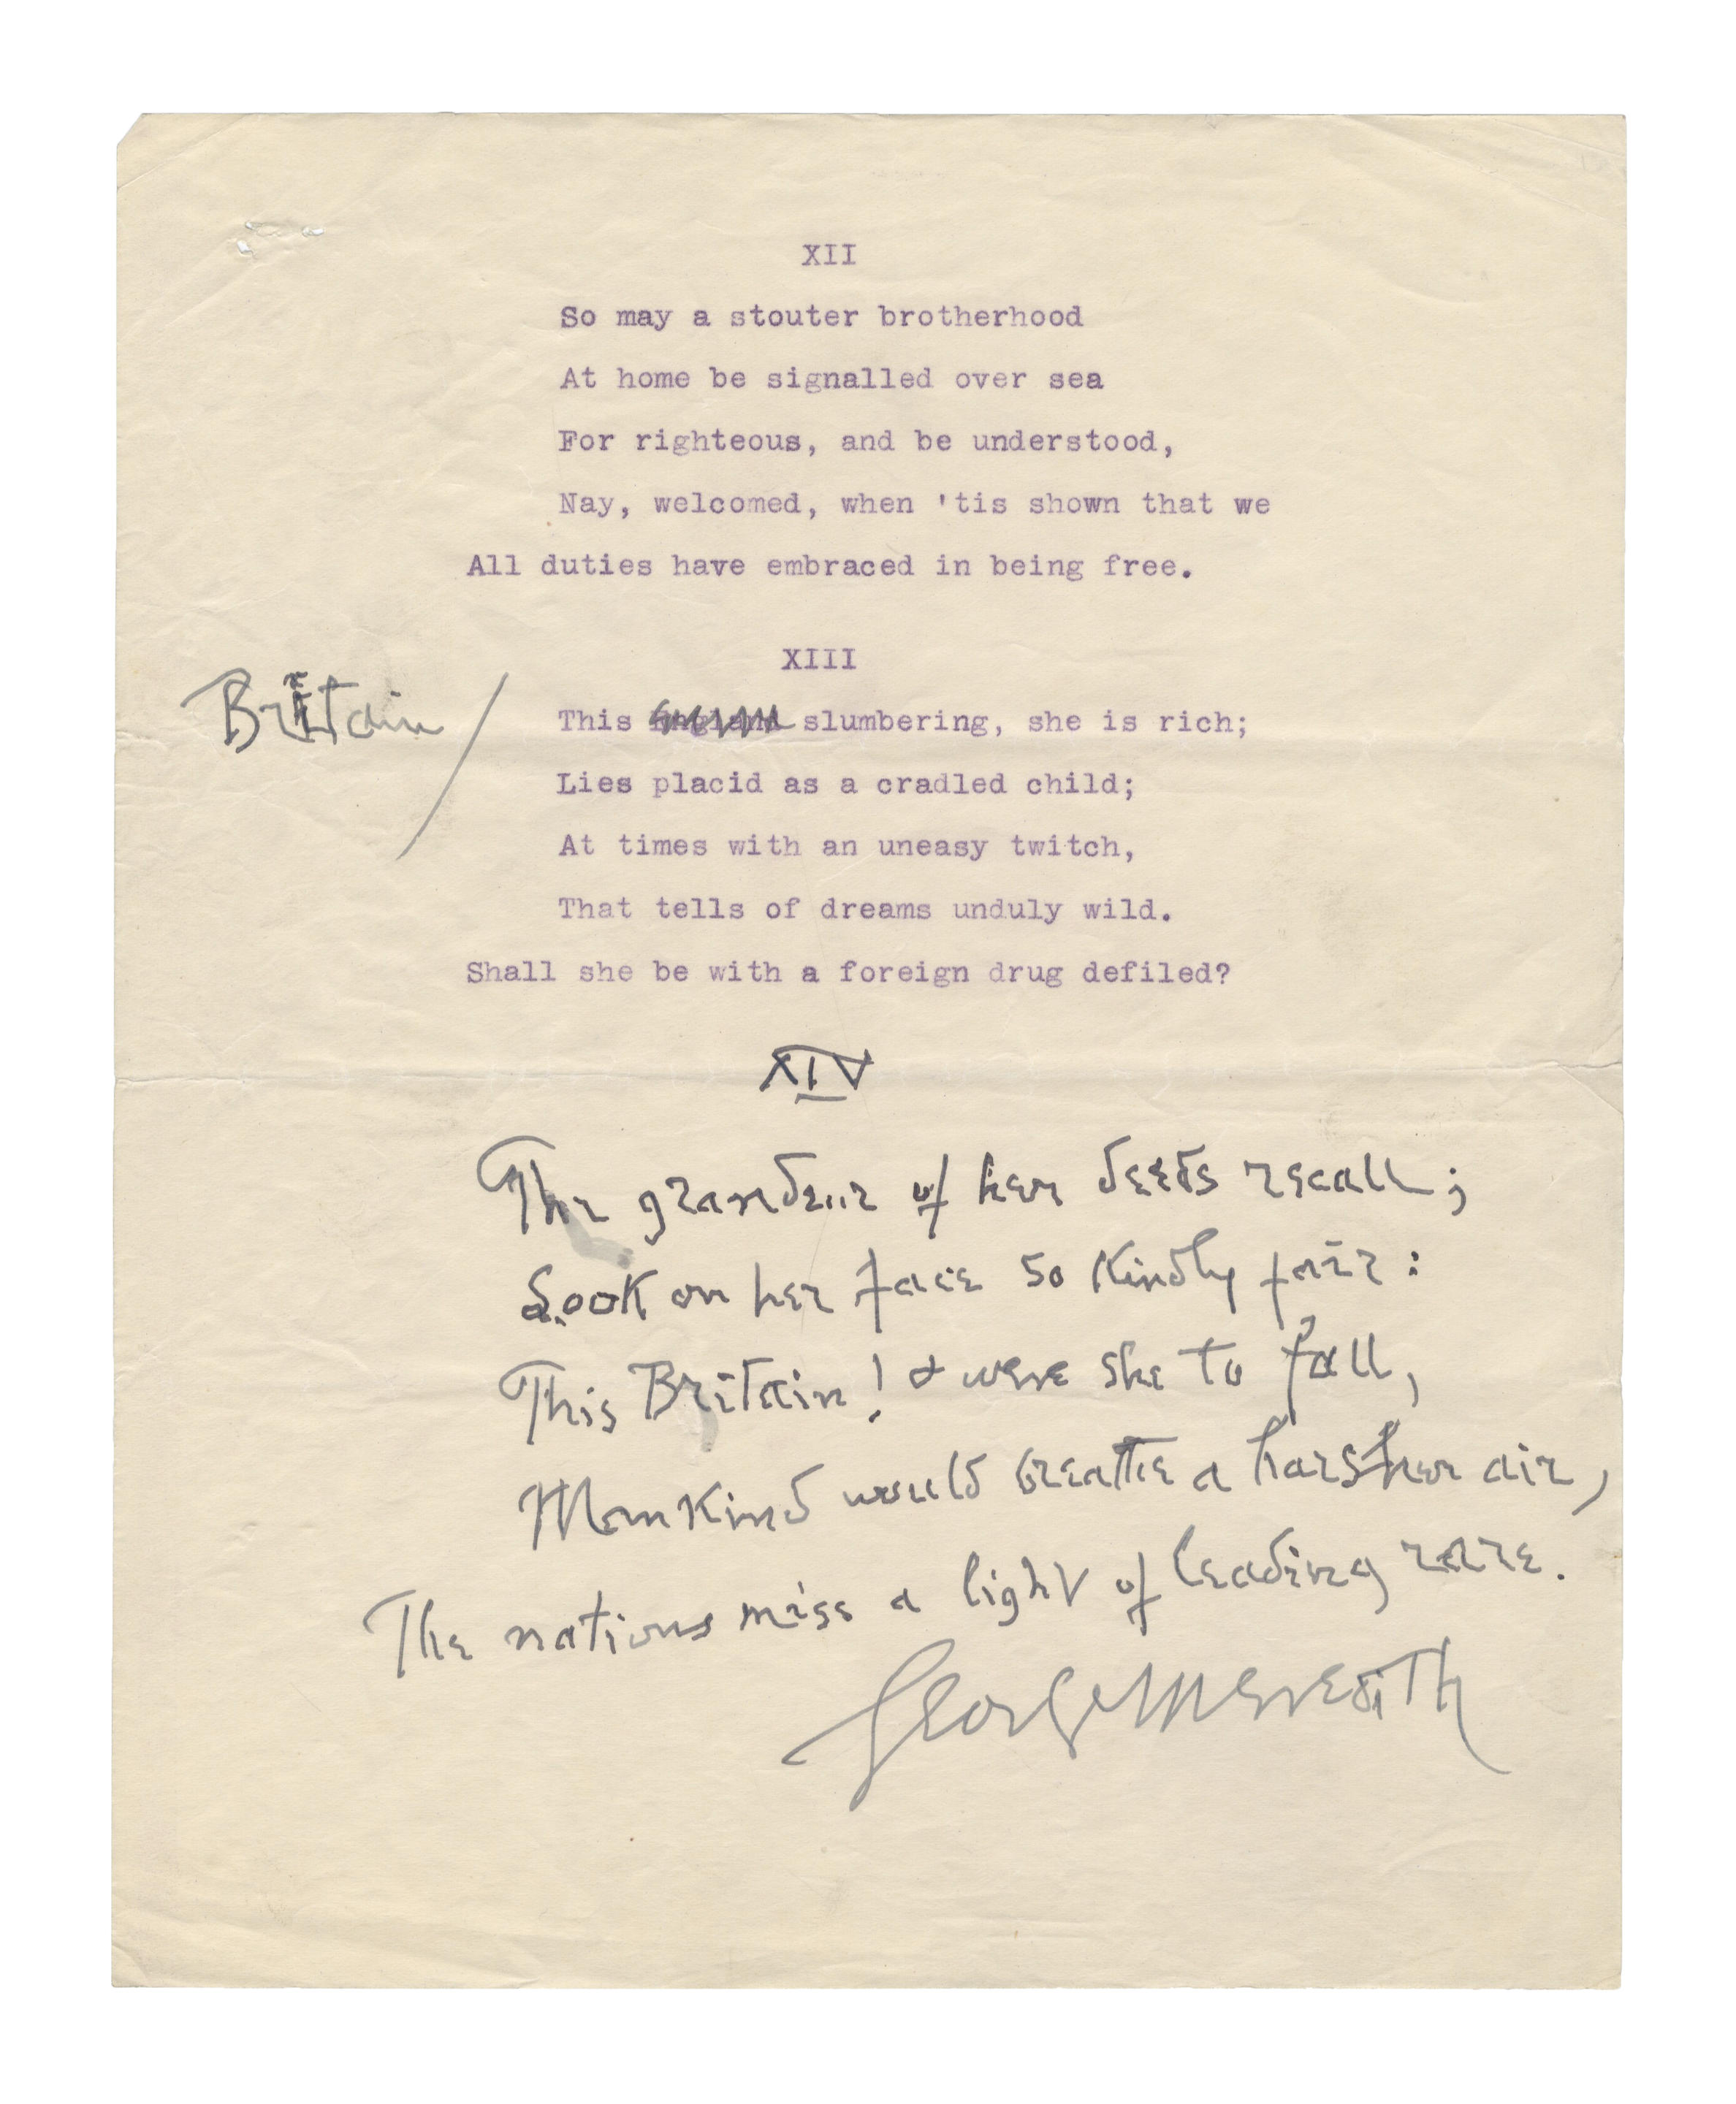 XII
So may a stouter brotherhood
At home be signalled over sea
For righteous, and be understood,
Nay, welcomed, when 'tis shown that we
All duties have embraced in being free.
XIII
Britain /
This England slumbering, she is rich;
Lies placid as a cradled child;
At times with an uneasy twitch,
That tells of dreams unduly wild.
Shall she be with a foreign drug defiled?
XIV
The grandeur of her deeds recall;
Look on her face so kindly fair:
This Britain! & were she to fall,
Mankind would breathe a harsher air,
The nations miss a light of leading rare.
George Meredith